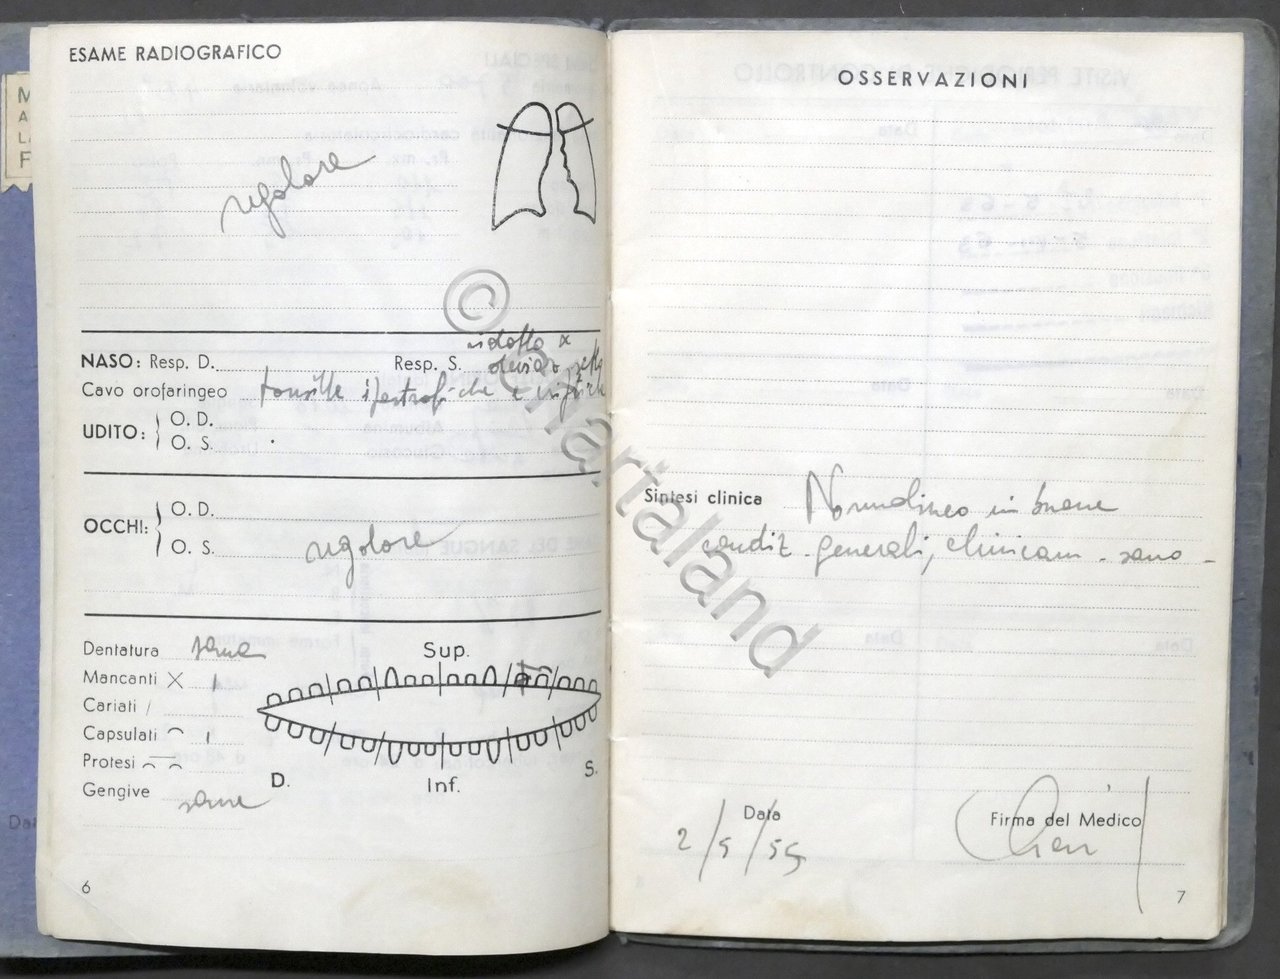 ESAME RADIOGRAFICO
regolare
NASO: Resp. D. Resp. S. ridotta x
Cavo orofaringeo tonsille ipertrofiche e
UDITO: O. D.
O. S.
OCCHI: O. D.
O. S. regolare
Dentatura sana
Mancanti X 1
Cariati /
Capsulati 1
Protesi
Gengive sane
Sup.
D. Inf. S.
6
OSSERVAZIONI
Sintesi clinica Normolineo in buone
condiz. generali, clinicam. sano -
Data Firma del Medico
2/5/55
7
M
A
LA
F
Da
© Chartaland